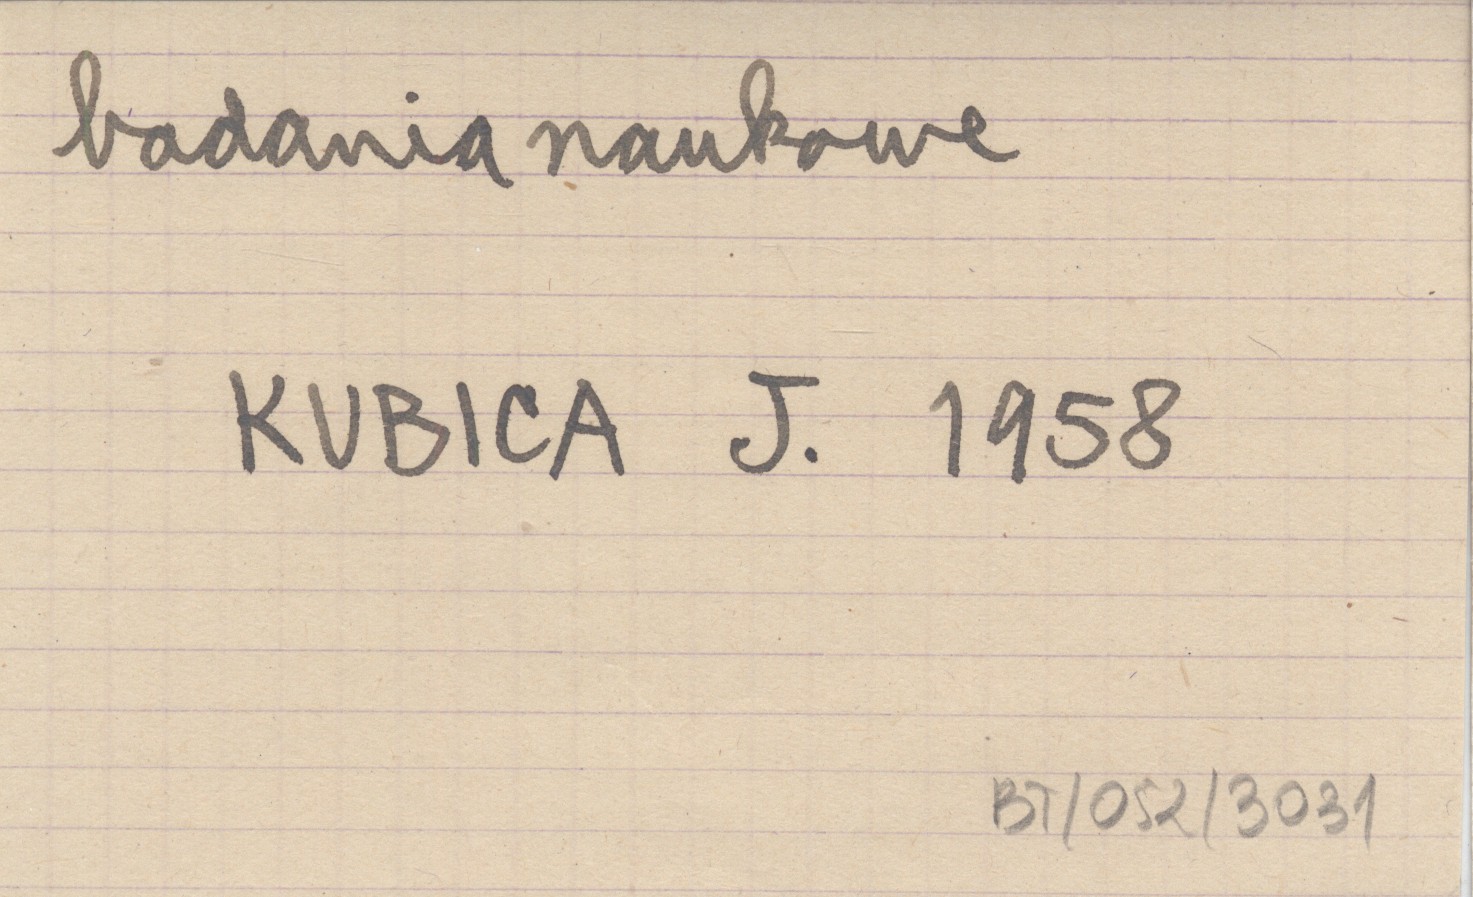 badania naukowe
KUBICA J. 1958
BT/052/3031